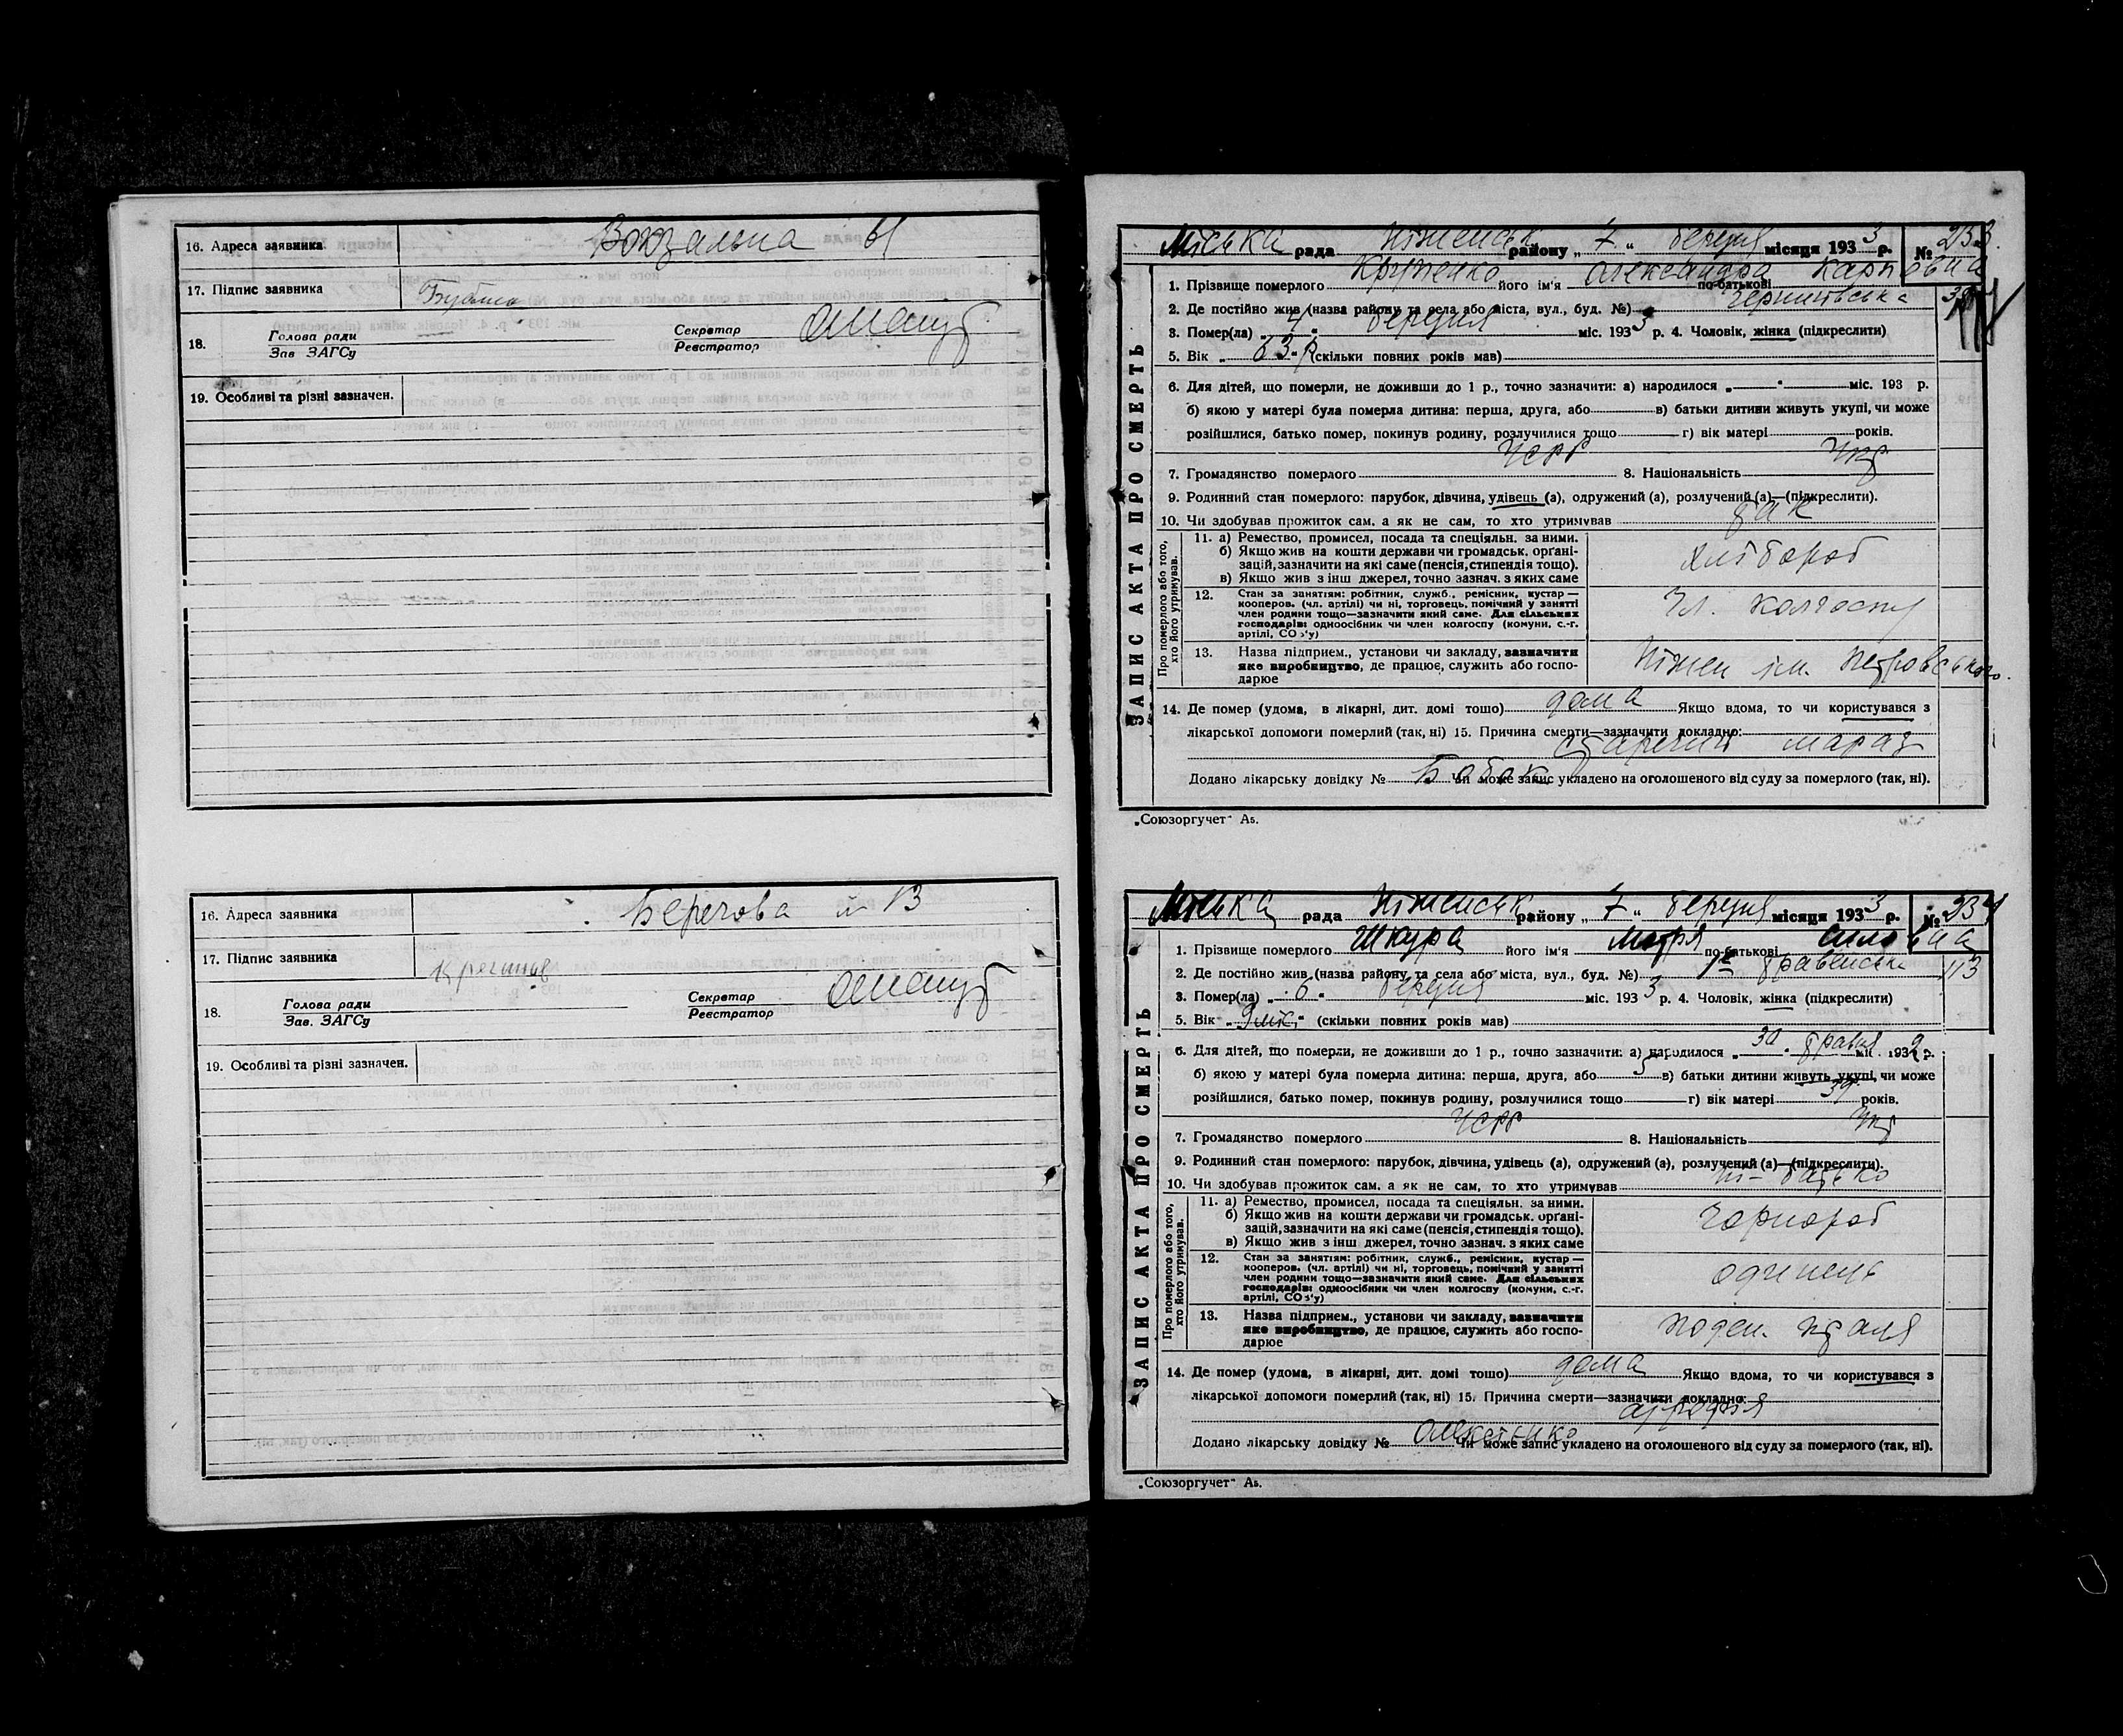 16. Адреса заявника Вокзальна 61
17. Підпис заявника
18. Голова ради
Зав ЗАГСу
Секретар
Реєстратор
19. Особливі та різні зазначен.
16. Адреса заявника Берегова № 13
17. Підпис заявника
18. Голова ради
Зав. ЗАГСу
Секретар
Реєстратор
19. Особливі та різні зазначен.
ЗАПИС АКТА ПРО СМЕРТЬ
Міська рада Ніженськ району „ 7 “ березня місяця 1933 р. № 233
1. Прізвище померлого його ім'я Олександра по-батькові Карповна
2. Де постійно жив (назва району та села або міста, вул., буд. №) Чернигівська
3. Помер(ла) „ 4 “ березня міс. 1933 р. 4. Чоловік, жінка (підкреслити)
5. Вік „ 63 р “ (скільки повних років мав)
6. Для дітей, що померли, не доживши до 1 р., точно зазначити: а) народилося „ “ міс. 193 р.
б) якою у матері була померла дитина: перша, друга, або в) батьки дитини живуть укупі, чи може
розійшлися, батько помер, покинув родину, розлучилися тощо г) вік матері років.
7. Громадянство померлого УСРР 8. Національність Укр
9. Родинний стан померлого: парубок, дівчина, удівець (а), одружений (а), розлучений (а)—(підкреслити).
10. Чи здобував прожиток сам, а як не сам, то хто утримував так
Про померлого або того, хто його утримував.
11. а) Ремество, промисел, посада та спеціяльн. за ними.
б) Якщо жив на кошти держави чи громадськ. орґані-
зацій, зазначити на які саме (пенсія, стипендія тощо).
в) Якщо жив з інш джерел, точно зазнач. з яких саме
хлібороб
12. Стан за заняттям: робітник, служб., ремісник, кустар—
кооперов. (чл. артілі) чи ні, торговець, помічний у занятті
член родини тощо—зазначити який саме. Для сільських
господарів: одноосібник чи член колгоспу (комуни, с.-г.
артілі, СОЗ'у)
Чл. колгоспу
13. Назва підприєм., установи чи закладу, зазначити
яке виробництво, де працює, служить або госпо-
дарює
Ніжен ім. Петровського.
14. Де помер (удома, в лікарні, дит. домі тощо) дома Якщо вдома, то чи користувався з
лікарської допомоги померлий (так, ні) 15. Причина смерти—зазначити докладно:
старечий маразм
Додано лікарську довідку № Бобок Чи може запис укладено на оголошеного від суду за померлого (так, ні).
„Союзоргучет“ А5.
ЗАПИС АКТА ПРО СМЕРТЬ
Міська рада Ніженськ району „ 7 “ березня місяця 1933 р. № 234
1. Прізвище померлого Шкура його ім'я Мотря по-батькові
2. Де постійно жив (назва району та села або міста, вул., буд. №) 113
3. Помер(ла) „ 6 “ березня міс. 1933 р. 4. Чоловік, жінка (підкреслити)
5. Вік „ 9 міс. “ (скільки повних років мав)
6. Для дітей, що померли, не доживши до 1 р., точно зазначити: а) народилося „ 30 “ травня міс. 1932 р.
б) якою у матері була померла дитина: перша, друга, або 5 в) батьки дитини живуть укупі, чи може
розійшлися, батько помер, покинув родину, розлучилися тощо г) вік матері 39 років.
7. Громадянство померлого УСРР 8. Національність Укр
9. Родинний стан померлого: парубок, дівчина, удівець (а), одружений (а), розлучений (а)—(підкреслити).
10. Чи здобував прожиток сам, а як не сам, то хто утримував ні - батько
Про померлого або того, хто його утримував.
11. а) Ремество, промисел, посада та спеціяльн. за ними.
б) Якщо жив на кошти держави чи громадськ. орґані-
зацій, зазначити на які саме (пенсія, стипендія тощо).
в) Якщо жив з інш джерел, точно зазнач. з яких саме
чорнороб
12. Стан за заняттям: робітник, служб., ремісник, кустар—
кооперов. (чл. артілі) чи ні, торговець, помічний у занятті
член родини тощо—зазначити який саме. Для сільських
господарів: одноосібник чи член колгоспу (комуни, с.-г.
артілі, СОЗ'у)
одинець
13. Назва підприєм., установи чи закладу, зазначити
яке виробництво, де працює, служить або госпо-
дарює
поден. праця
14. Де помер (удома, в лікарні, дит. домі тощо) дома Якщо вдома, то чи користувався з
лікарської допомоги померлий (так, ні) 15. Причина смерти—зазначити докладно:
атрофія
Додано лікарську довідку № Чи може запис укладено на оголошеного від суду за померлого (так, ні).
„Союзоргучет“ А5.